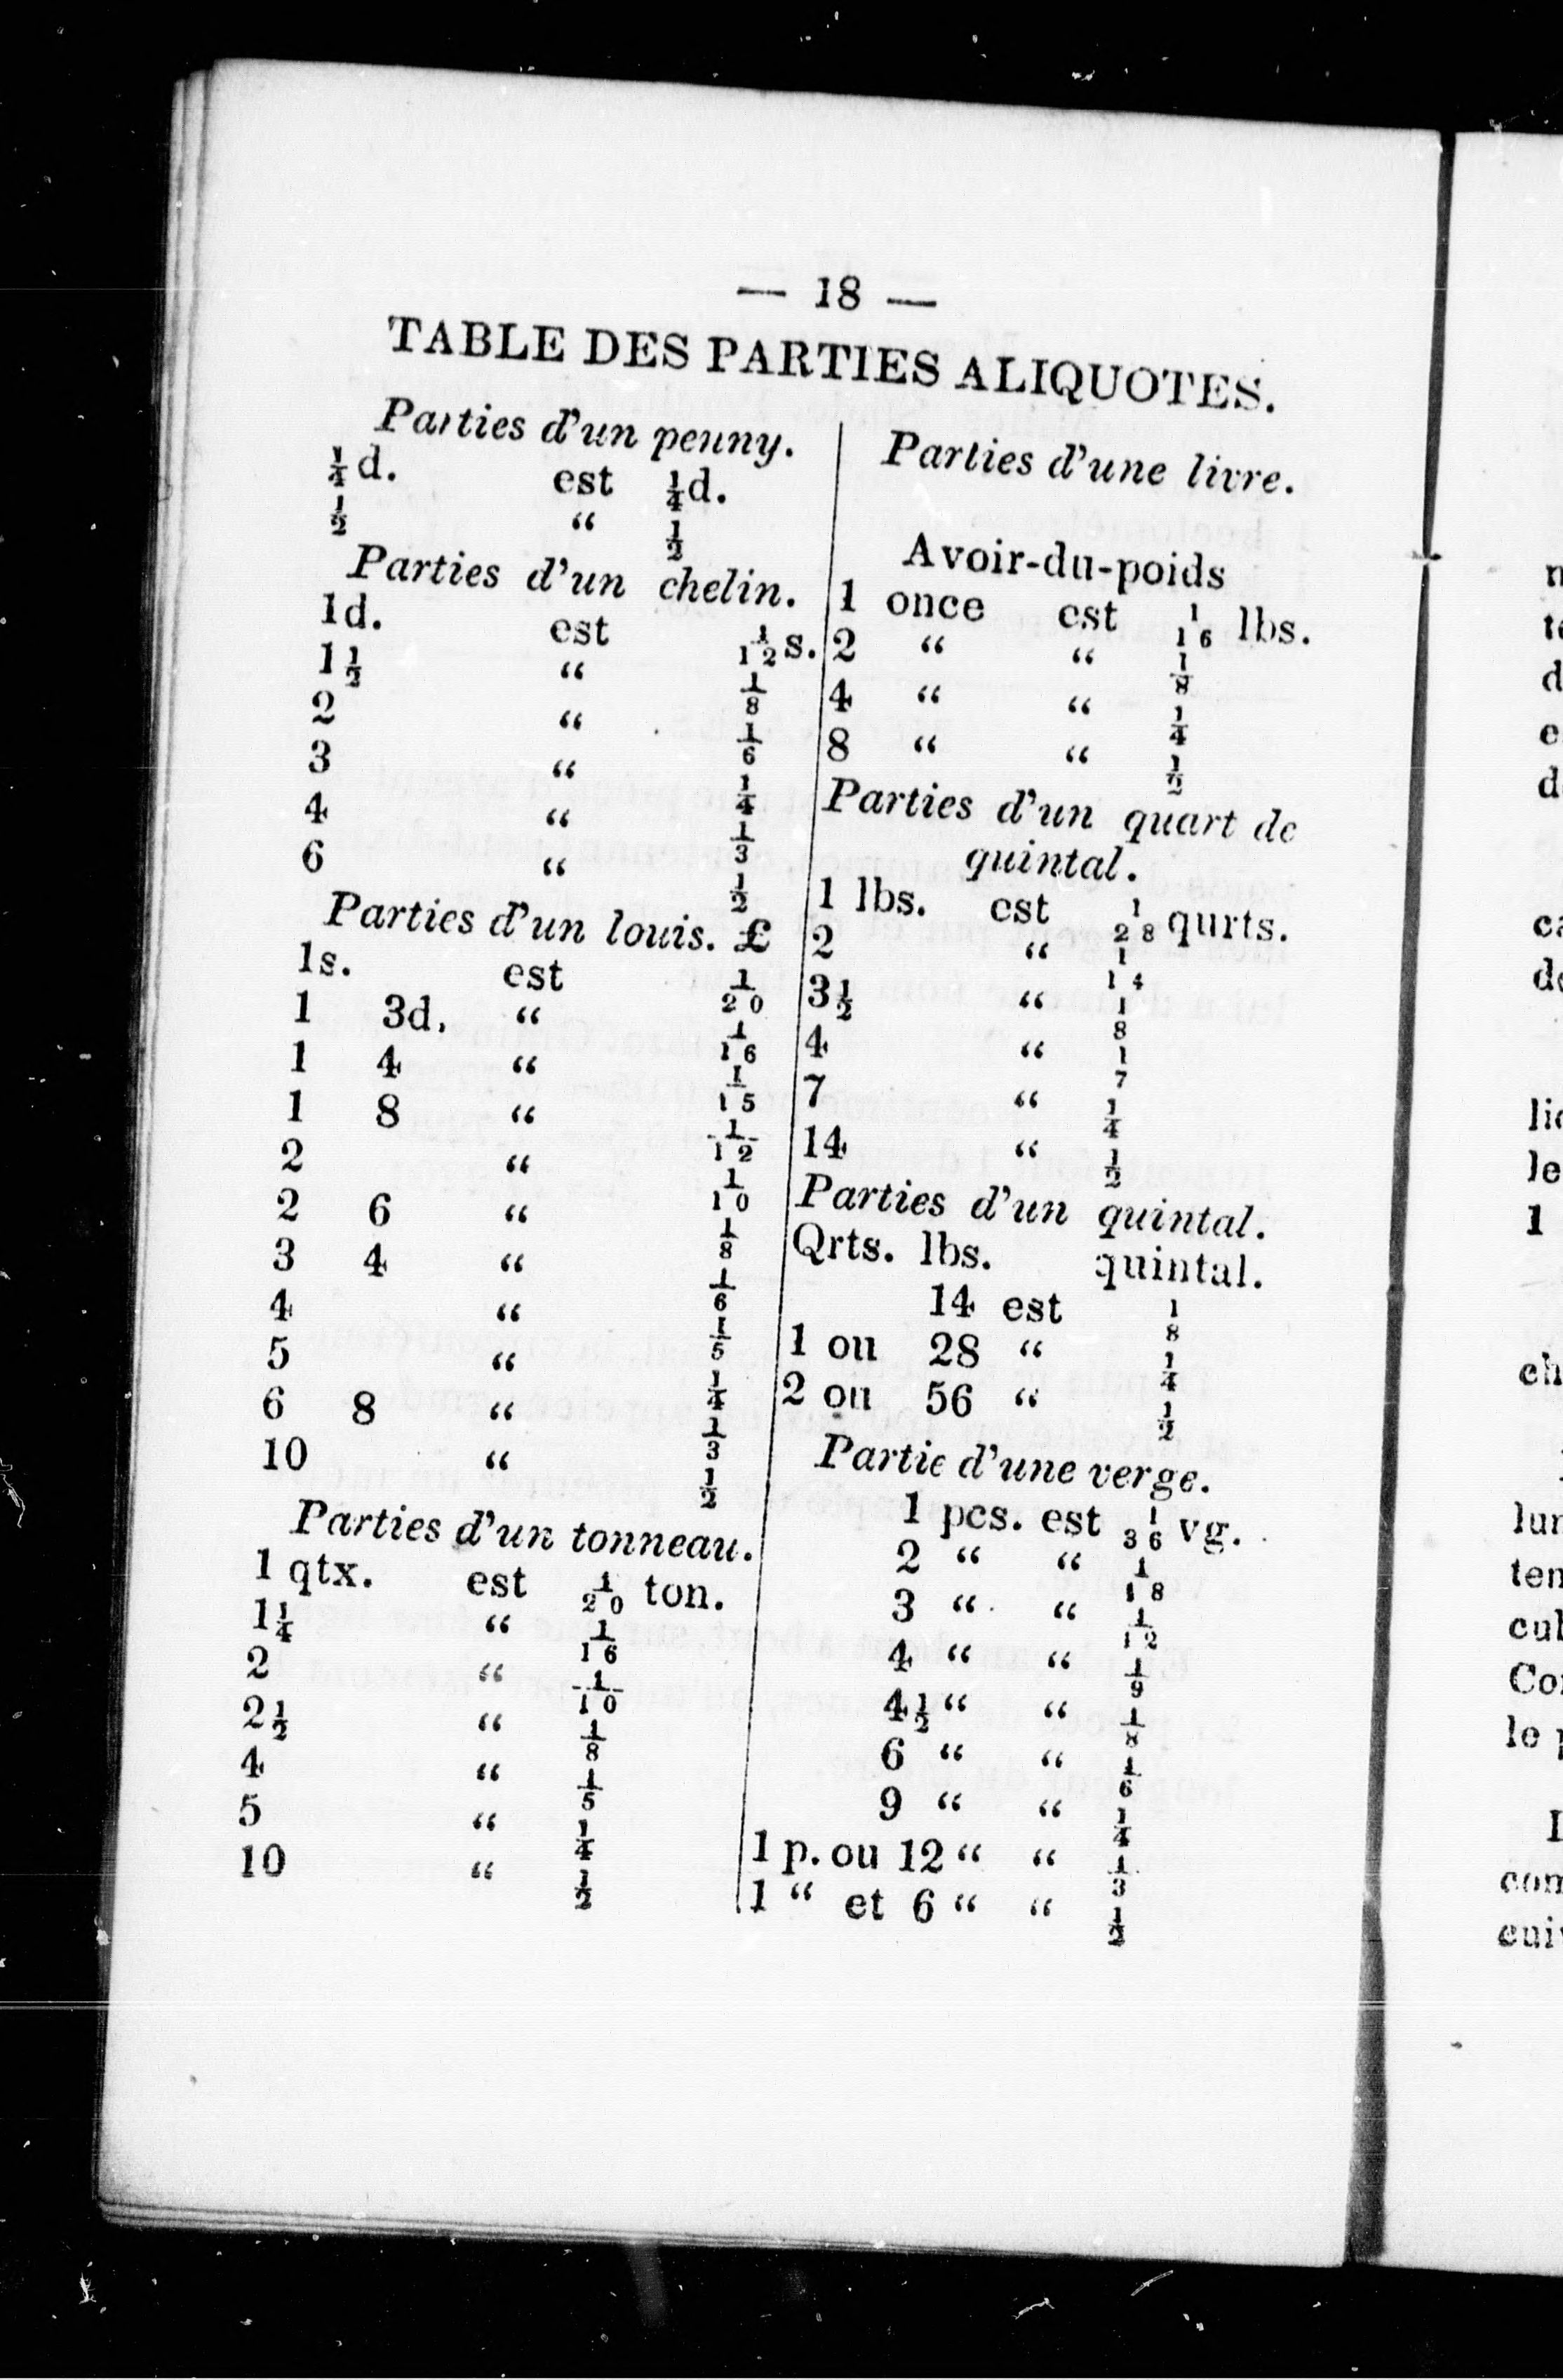 — 18 —
TABLE DES PARTIES ALIQUOTES.
Parties d'un penny.
¼d. est ¼d.
½ “ ½
Parties d'un chelin.
1d. est 1/12 s.
1½ “ ⅛
2 “ ⅙
3 “ ¼
4 “ ⅓
6 “ ½
Parties d'un louis. £
1s. est 1/20
1 3d. “ 1/16
1 4 “ 1/15
1 8 “ 1/12
2 “ 1/10
2 6 “ ⅛
3 4 “ ⅙
4 “ ⅕
5 “ ¼
6 8 “ ⅓
10 “ ½
Parties d'un tonneau.
1 qtx. est 1/20 ton.
1¼ “ 1/16
2 “ 1/10
2½ “ ⅛
4 “ ⅕
5 “ ¼
10 “ ½
Parties d'une livre.
Avoir-du-poids
1 once est 1/16 lbs.
2 “ “ ⅛
4 “ “ ¼
8 “ “ ½
Parties d'un quart de
quintal.
1 lbs. est 1/28 qurts.
2 “ 1/14
3½ “ ⅛
4 “ 1/7
7 “ ¼
14 “ ½
Parties d'un quintal.
Qrts. lbs. quintal.
14 est ⅛
1 ou 28 “ ¼
2 ou 56 “ ½
Partie d'une verge.
1 pcs. est 1/36 vg.
2 “ “ 1/18
3 “ “ 1/12
4 “ “ 1/9
4½ “ “ ⅛
6 “ “ ⅙
9 “ “ ¼
1 p. ou 12 “ “ ⅓
1 “ et 6 “ “ ½